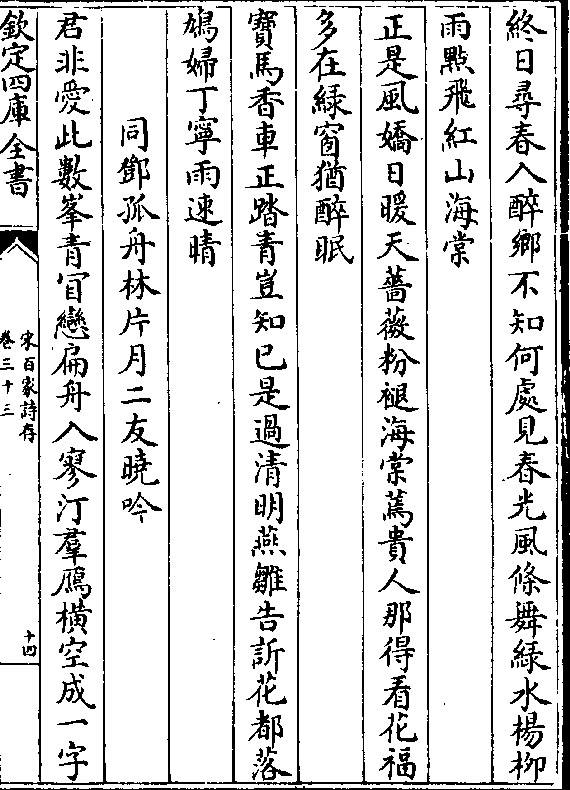 終日尋春入醉鄉不知何處見春光風條舞緑水楊柳
雨㸃飛紅山海棠
正是風嬌日暖天薔薇粉褪海棠蔫貴人那得看花福
多在緑窗猶醉眠
寳馬香車正踏青豈知已是過清明燕雛告訴花都落
鳩婦丁寧雨速晴
同鄧孤舟林片月二友曉吟
君非愛此數峯青肎戀扁舟入寥汀羣鴈横空成一字
欽定四庫全書
宋百家詩存
卷三十三
十四